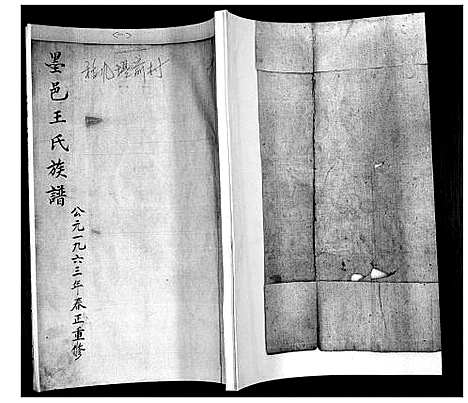 墨邑王氏族譜
公元一九六三年春正重修